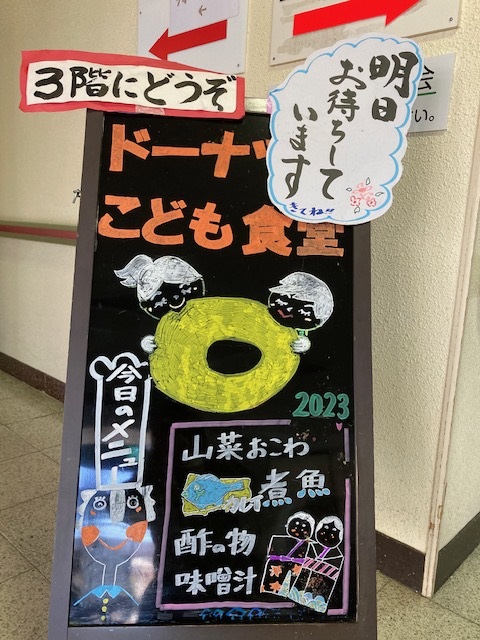 3階にどうぞ
明日
お待ちして
います
きてね
ドーナッ
こども食堂
2023
今日のメニュー
山菜おこわ
カレイ煮魚
酢の物
味噌汁
会
い。